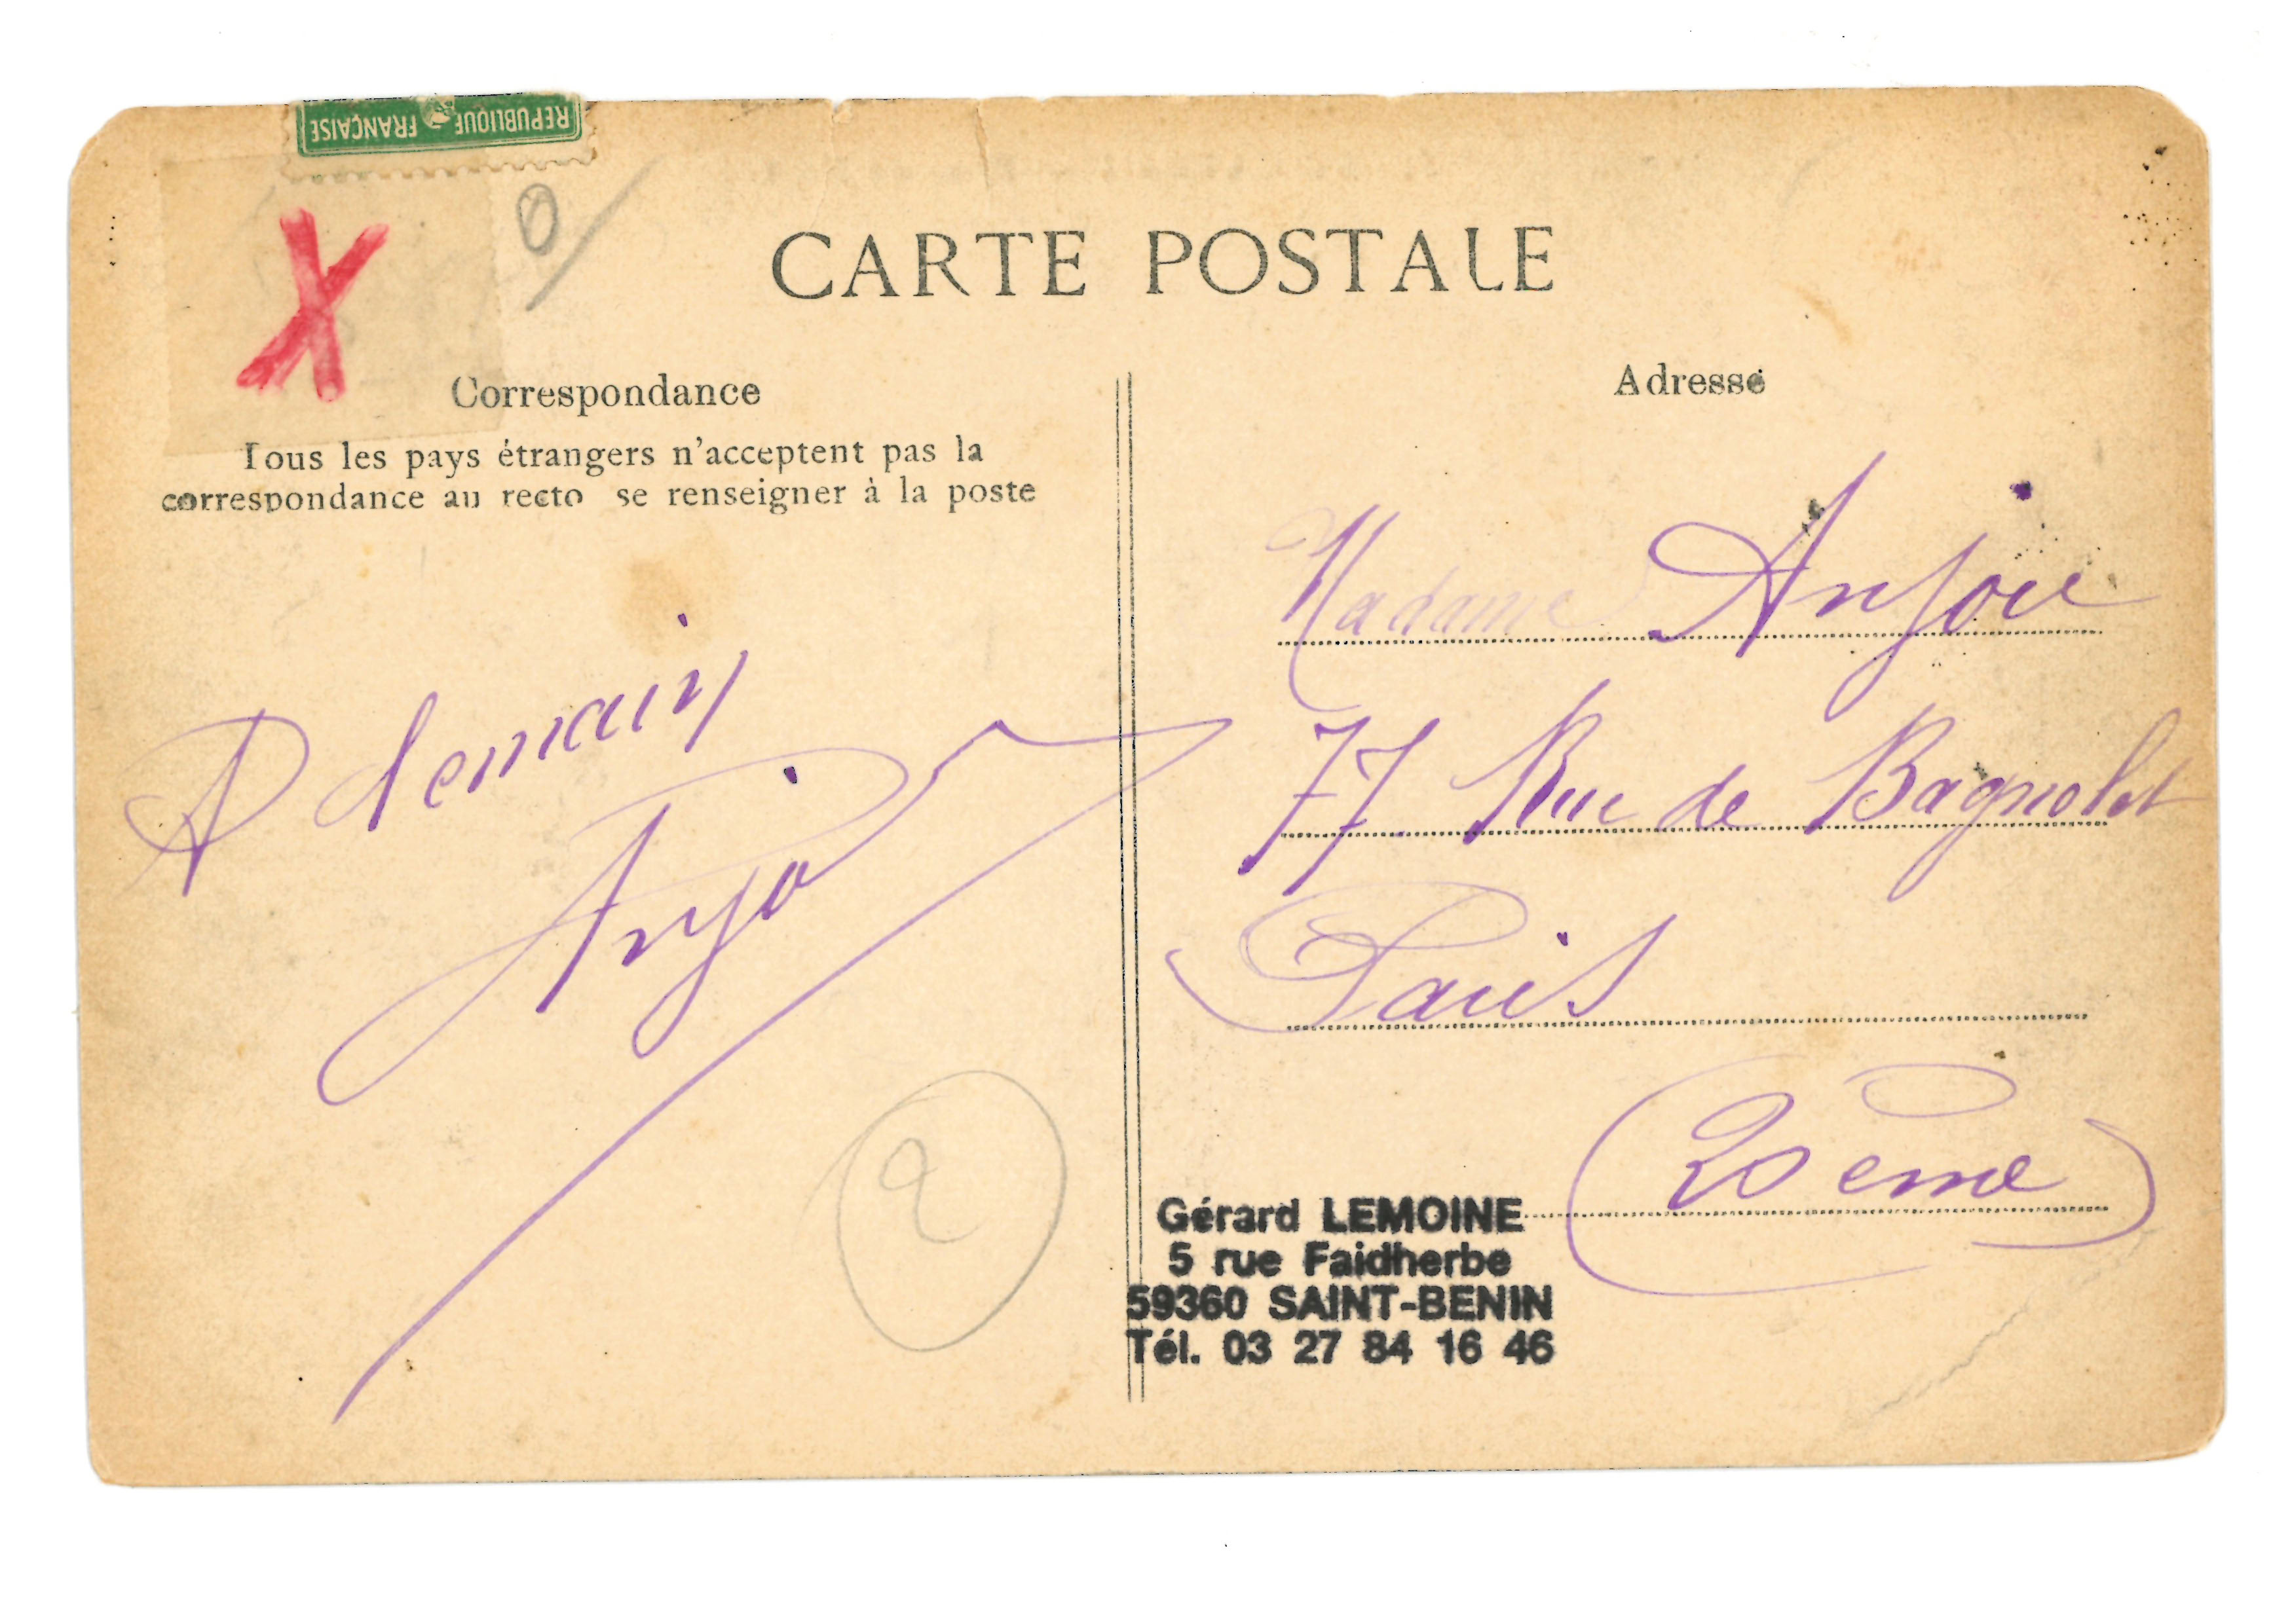 REPUBLIQUE FRANÇAISE
X
CARTE POSTALE
Correspondance
Tous les pays étrangers n'acceptent pas la
correspondance au recto se renseigner à la poste
A demain
Anjou
Adresse
Madame Anjou
77 Rue de Bagnolet
Paris
20 eme
Gérard LEMOINE
5 rue Faidherbe
59360 SAINT-BENIN
Tél. 03 27 84 16 46